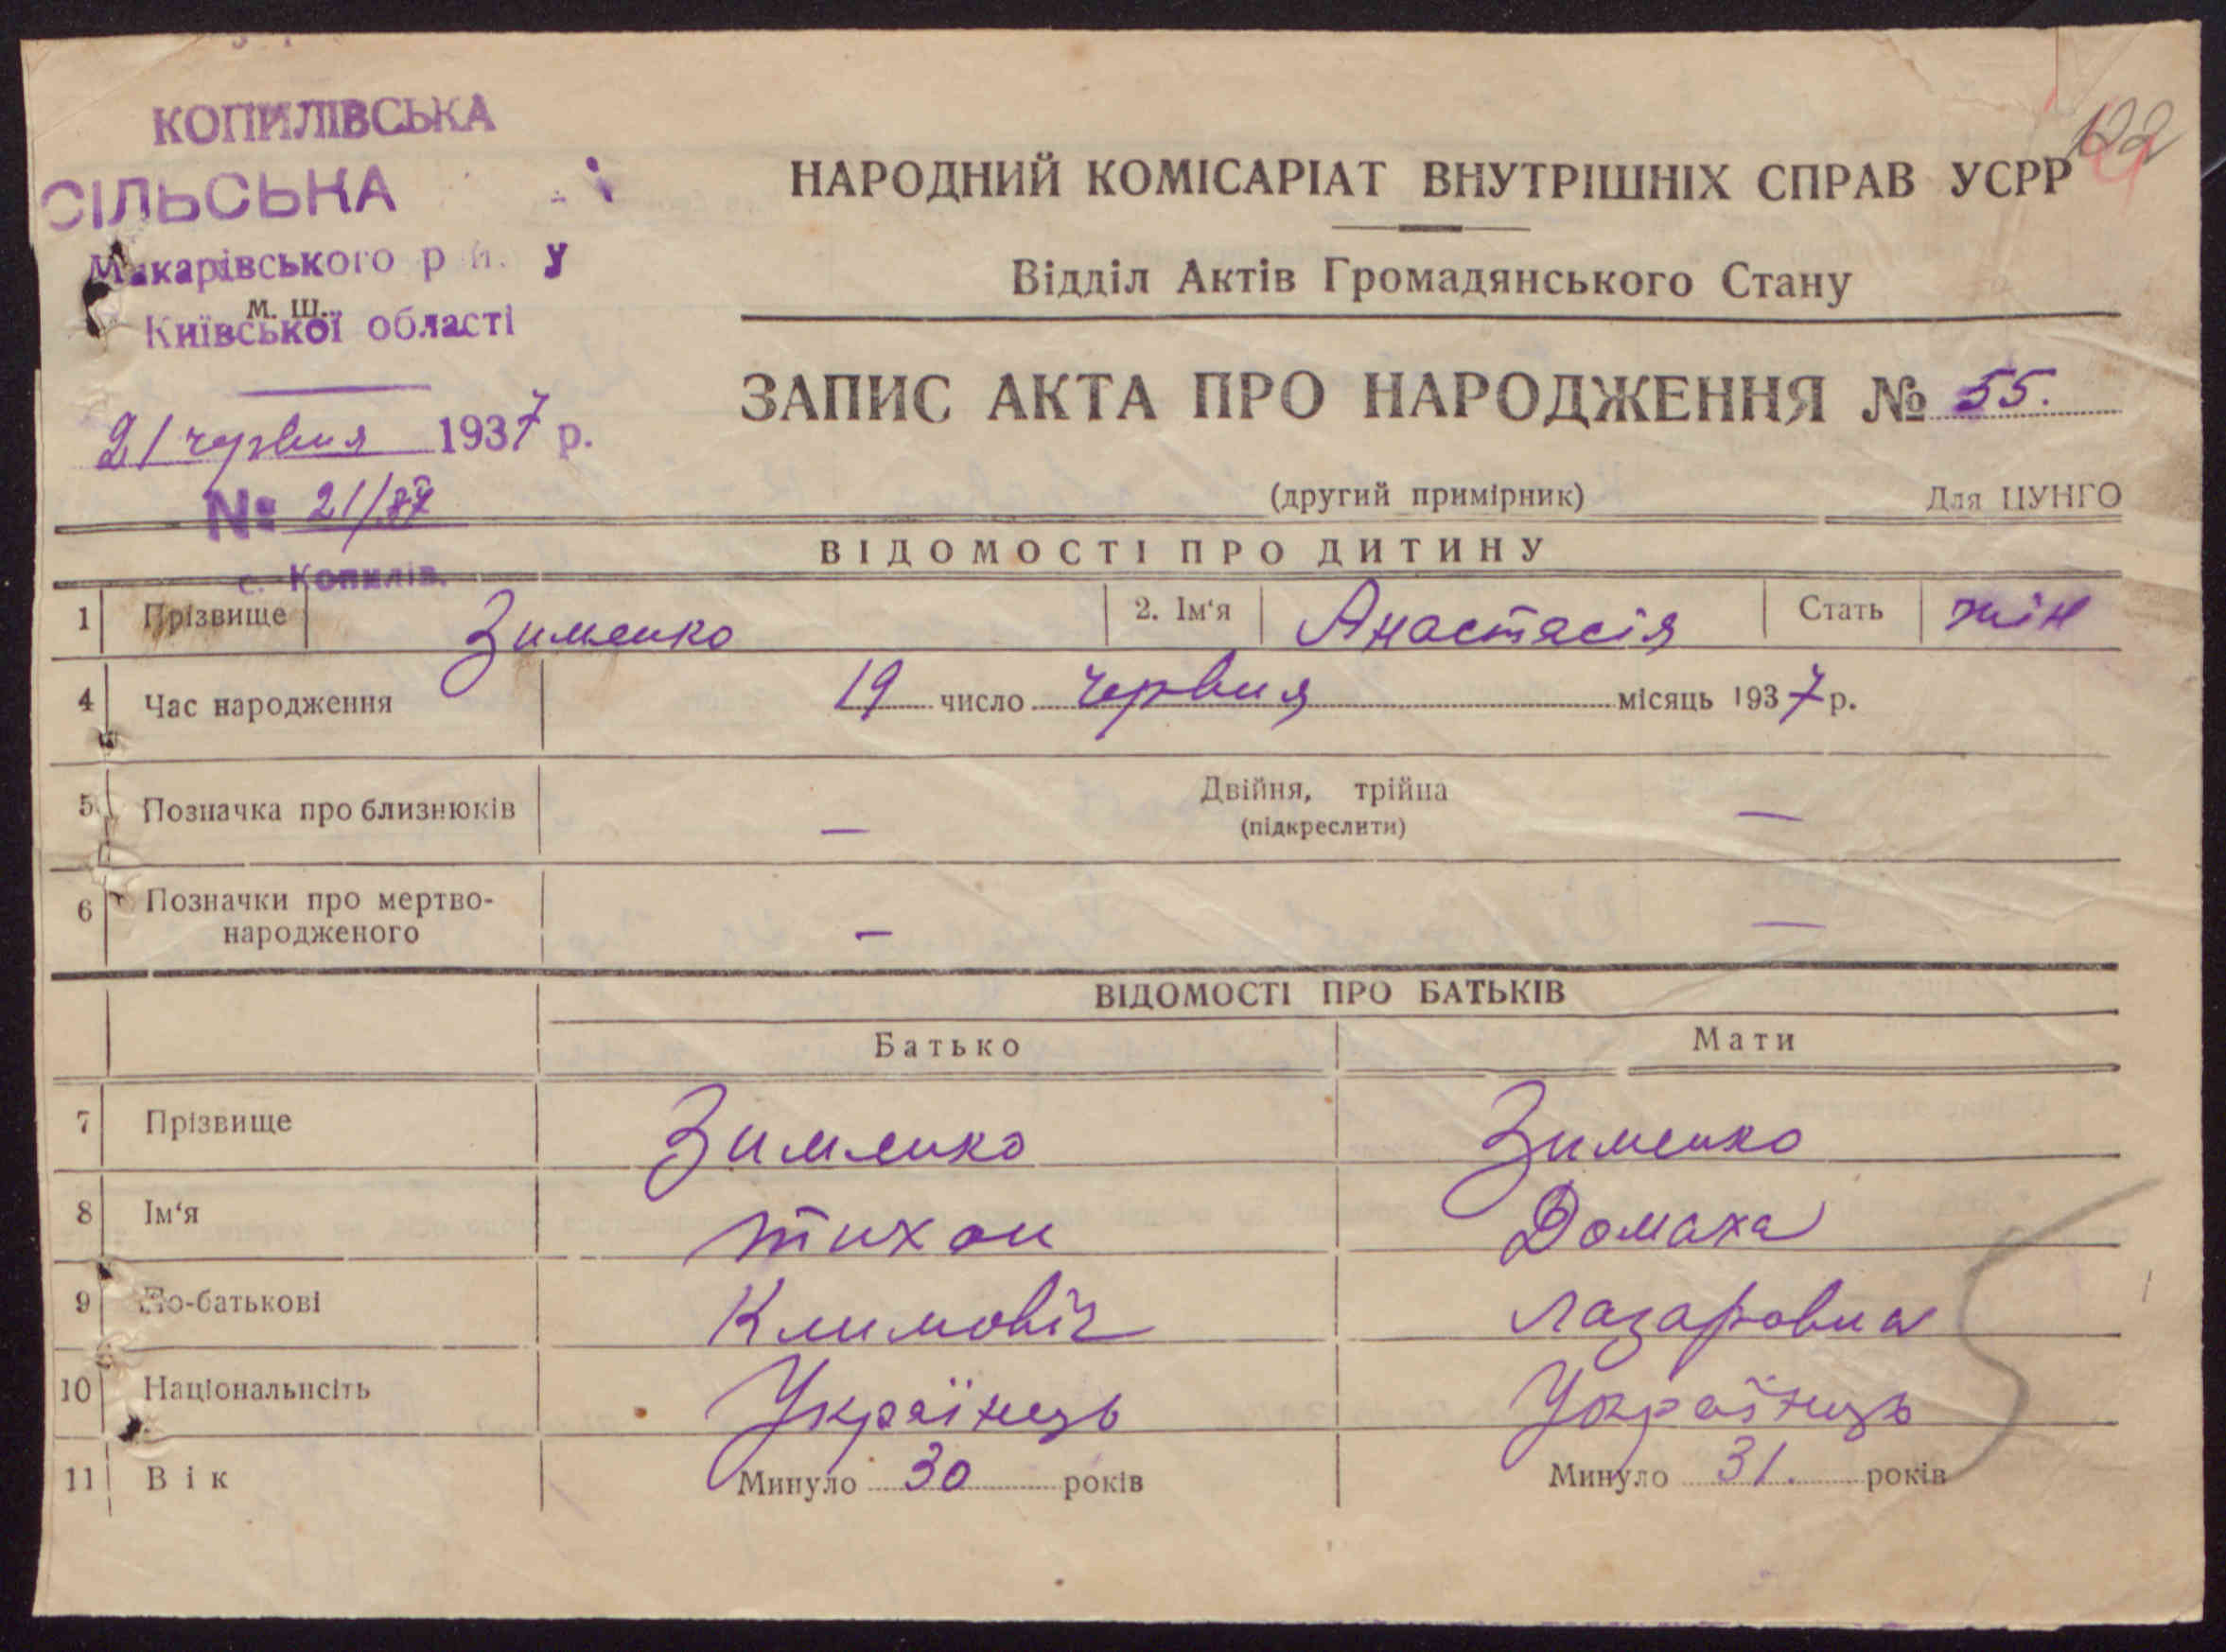 КОПИЛІВСЬКА
СІЛЬСЬКА
Макарівського
м. ш.
Київської області
21 червня 1937 р.
№ 21/87
с. Копилів.
122
НАРОДНИЙ КОМІСАРІАТ ВНУТРІШНІХ СПРАВ УСРР
Відділ Актів Громадянського Стану
ЗАПИС АКТА ПРО НАРОДЖЕННЯ № 55.
(другий примірник) Для ЦУНГО
ВІДОМОСТІ ПРО ДИТИНУ
1 Прізвище Зименко 2. Ім'я Анастасія Стать жін
4 Час народження 19 число червня місяць 1937 р.
5 Позначка про близнюків — Двійня, трійна —
(підкреслити)
6 Позначки про мертво-
народженого — —
ВІДОМОСТІ ПРО БАТЬКІВ
Батько Мати
7 Прізвище Зименко Зименко
8 Ім'я Тихон Домаха
9 По-батькові Климовіч Лазаровна
10 Національнсіть Українець Українець
11 Вік Минуло 30 років Минуло 31. років